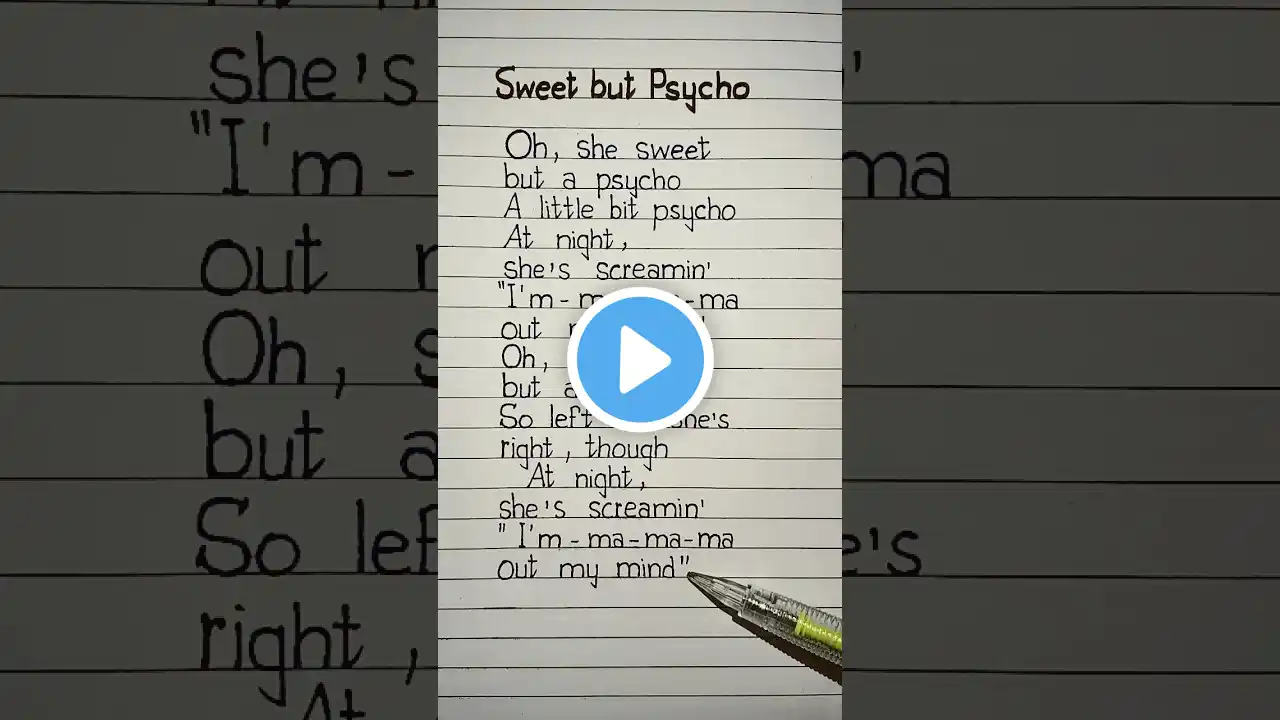 Sweet but Psycho
Oh, she sweet
but a psycho
A little bit psycho
At night,
she's screamin'
"I'm-m -ma
out
Oh,
but a
So left she's
right, though
At night,
she's screamin'
" I'm-ma-ma-ma
out my mind"
she's
"I'm-
ma
out
Oh,
but a
So lef
e's
right,
At